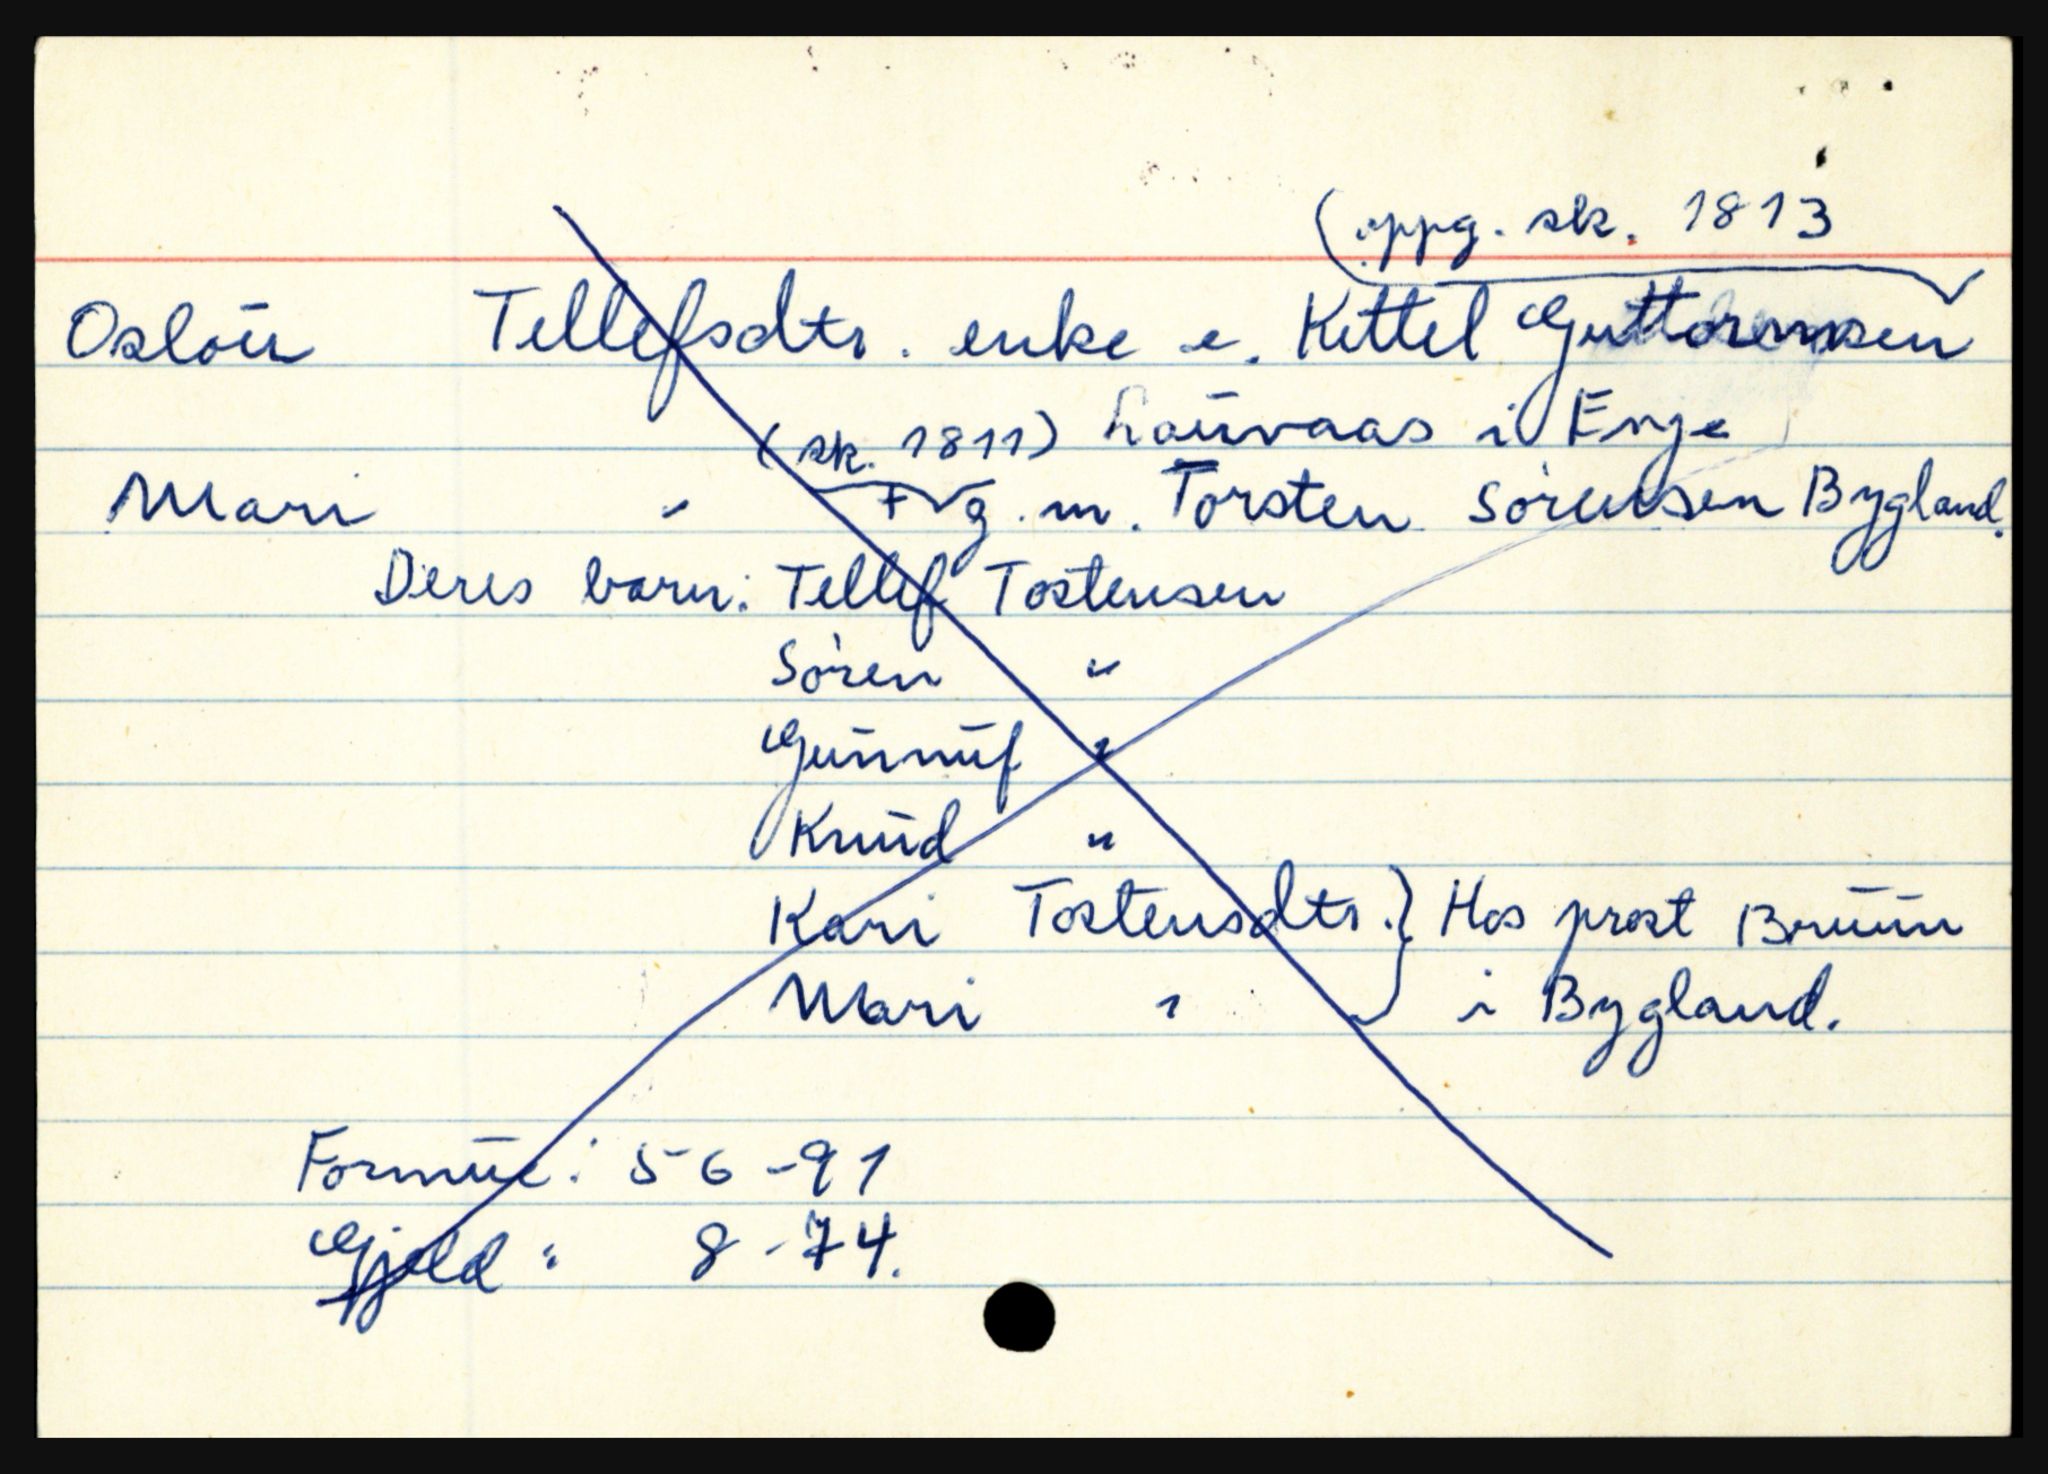 (oppg. sk. 1813
Oslou Tellefsdtr. enke e. Kittel Guttormsen
(sk. 1811) Lauvaas i Evje
Mari " + g. m. Torsten Sörensen Bygland.
Deres barn: Tellef Tostensen
Sören "
Gunnuf "
Knud "
Kari Tostensdtr. } Hos prost Bruun
Mari " i Bygland.
Formue: 56-91
Gjeld : 8-74.